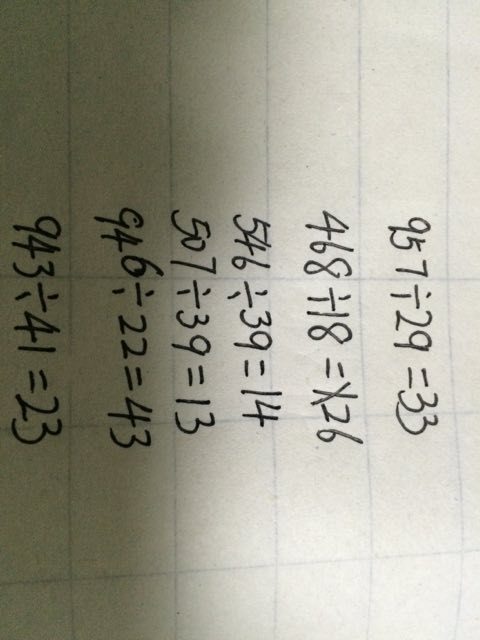 957÷29=33
468÷18=26
546÷39=14
507÷39=13
946÷22=43
943÷41=23